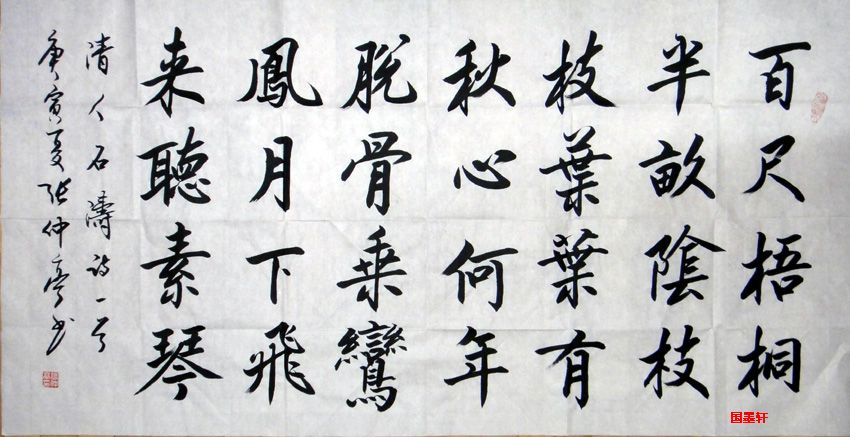 百尺梧桐
半畝陰枝
枝葉葉有
秋心何年
脫骨乘鸞
鳳月下飛
来聽素琴
清人石濤诗一首
庚寅夏張仲亭书
国墨轩